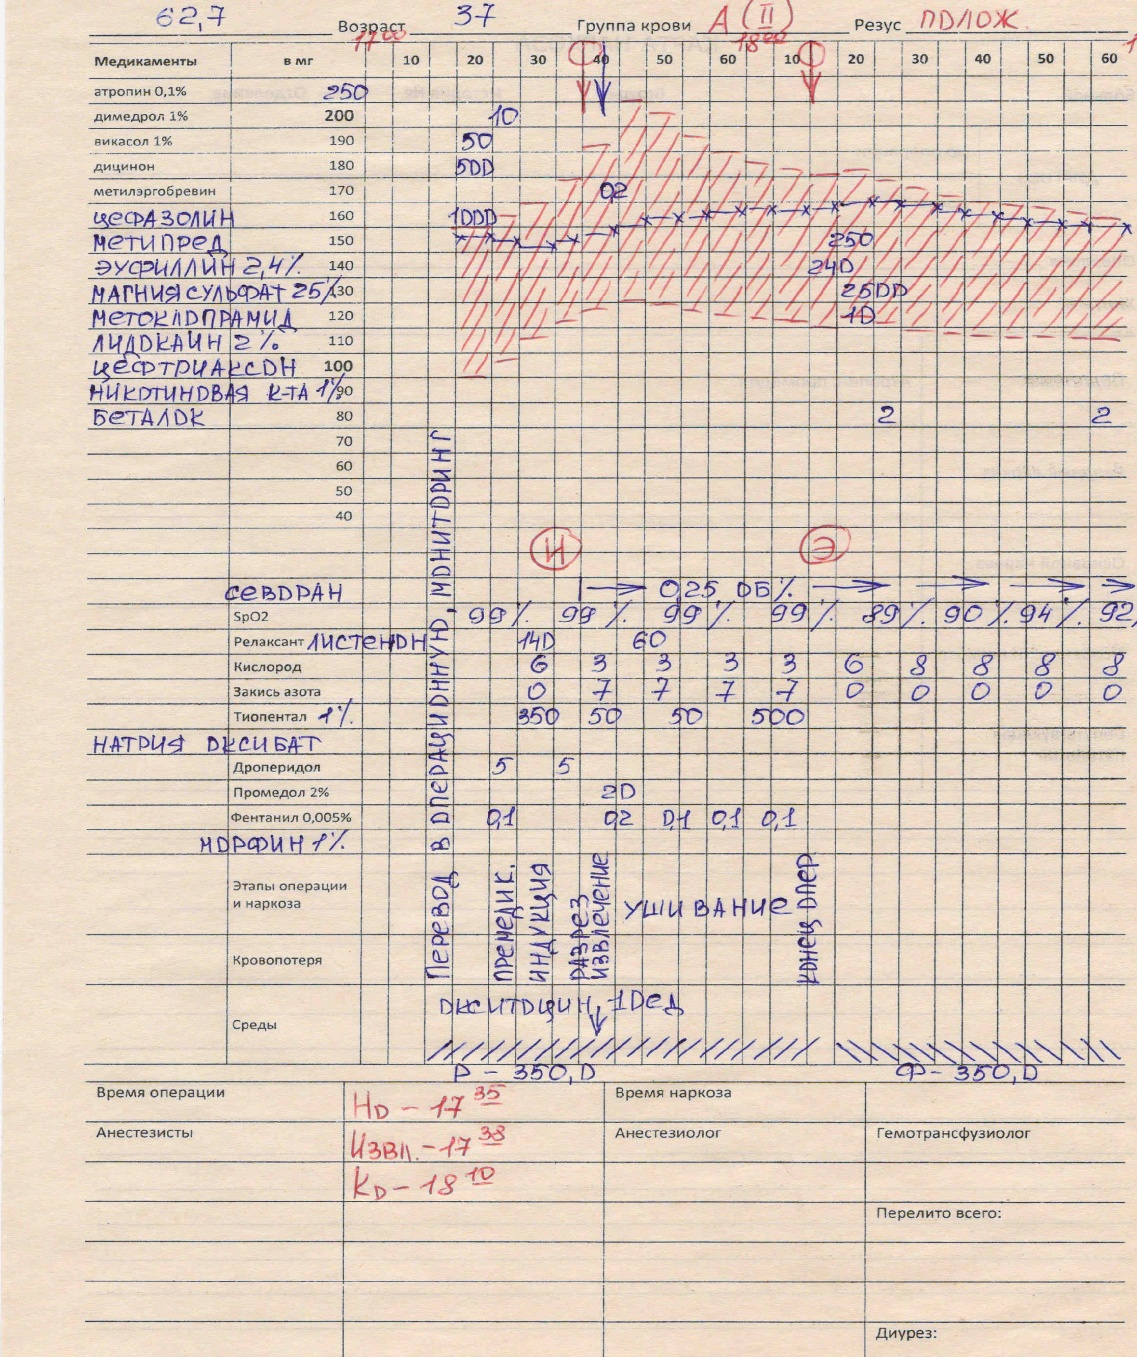 62,7 Возраст 37 Группа крови А (II) Резус ПОЛОЖ
17 00 18 00
Медикаменты в мг 10 20 30 40 50 60 10 20 30 40 50 60
атропин 0,1% 250
димедрол 1% 200 10
викасол 1% 190 50
дицинон 180 500
метилэргобревин 170 02
ЦЕФАЗОЛИН 160 1000
МЕТИПРЕД 150 250
ЭУФИЛЛИН 2,4% 140 240
МАГНИЯ СУЛЬФАТ 25% 130 2500
МЕТОКЛОПРАМИД 120 10
ЛИДОКАИН 2% 110
ЦЕФТРИАКСОН 100
НИКОТИНОВАЯ К-ТА 1% 90
БЕТАЛОК 80 2 2
70
60
50
40
И Э
СЕВОРАН 0,25 ОБ%
SpO2 99% 99% 99% 99% 89% 90% 94% 92%
Релаксант ЛИСТЕНОН 140 60
Кислород 6 3 3 3 3 6 8 8 8 8
Закись азота 0 7 7 7 7 0 0 0 0 0
Тиопентал 1% 350 50 50 500
НАТРИЯ ОКСИБАТ
Дроперидол 5 5
Промедол 2% 20
Фентанил 0,005% 0,1 02 0,1 0,1 0,1
МОРФИН 1%
Этапы операции
и наркоза
ПЕРЕВОД В ОПЕРАЦИОННУЮ, МОНИТОРИНГ
ПРЕМЕДИК.
ИНДУКЦИЯ
РАЗРЕЗ
ИЗВЛЕЧЕНИЕ
УШИВАНИЕ
КОНЕЦ ОПЕР
Кровопотеря
ОКСИТОЦИН, 10 ЕД
Среды
Р - 350,0 Ф - 350,0
Время операции НО - 17 35 Время наркоза
Анестезисты ИЗВЛ. - 17 38 Анестезиолог Гемотрансфузиолог
КО - 18 10
Перелито всего:
Диурез: